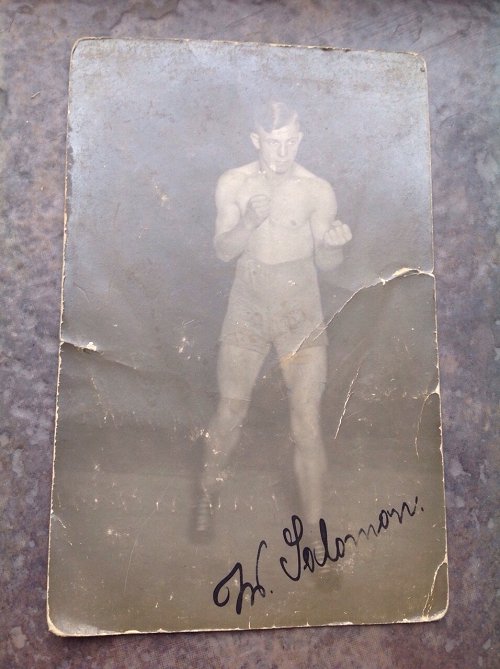 W. Salomon.